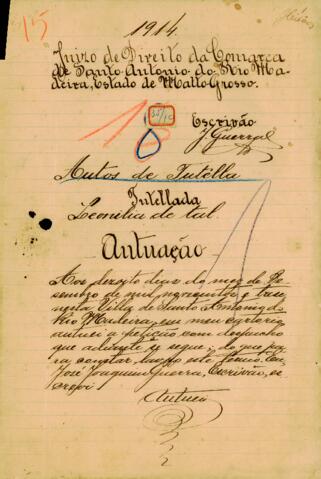 15
1914.
Juizo de Direito da Comarca
de Santo Antonio do Rio Ma-
deira, Estado de Matto-Grosso.
Escrivão
J. Guerra
Autos de Tutélla
Tutellada
Leonilia de tal.
Autuação
Aos dezoito dias do mez de De-
sembro de mil novecentos e treze
nesta Villa de Santo Antonio do
Rio Madeira, em meu cartorio
autuei a petição com despacho
que adiante se segue; do que pa-
ra constar, lavro este termo. Eu,
José Joaquim Guerra, Escrivão, es-
crevi
Autuei